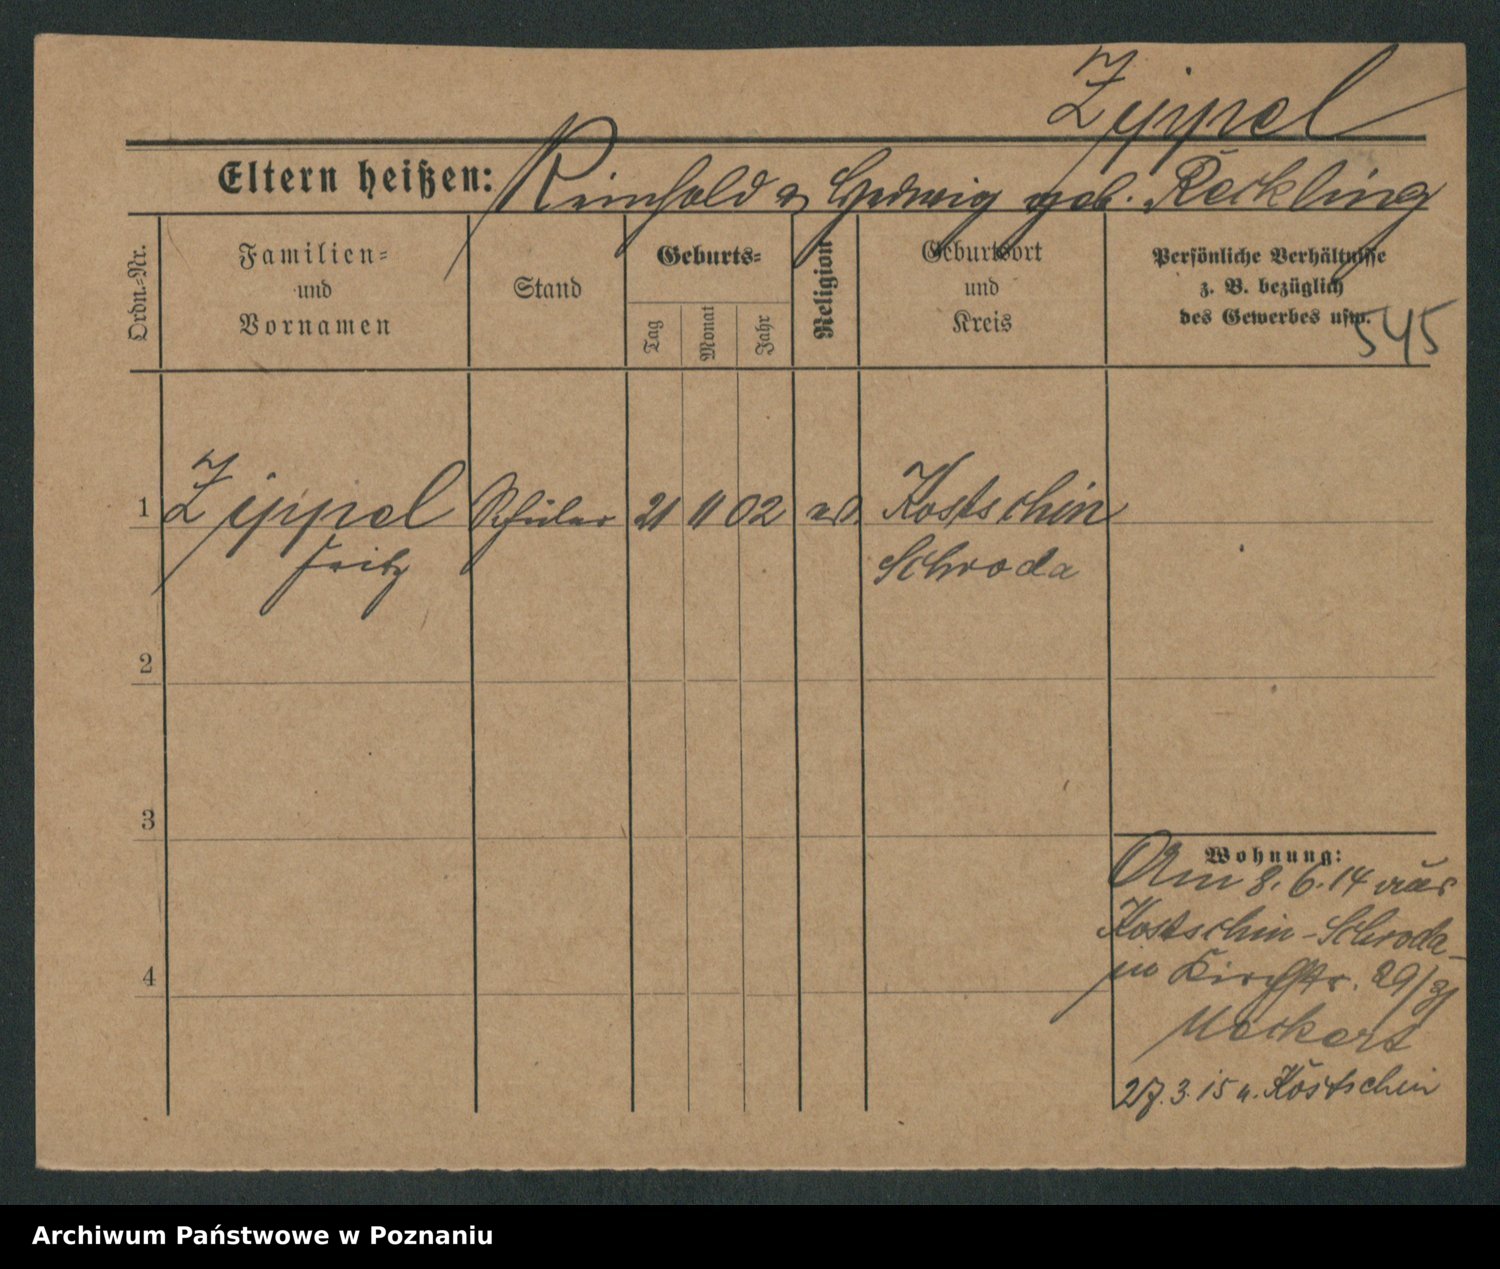 Zippel
Eltern heißen: Reinhold u Hedwig geb. Reckling
Ordn.-Nr.
Familien-
und
Vornamen
Stand
Geburts-
Tag
Monat
Jahr
Religion
Geburtsort
und
Kreis
Persönliche Verhältnisse
z. B. bezüglich
des Gewerbes usw.
545
1 Zippel Schüler 21 11 02 ev. Kostschin
Fritz Schroda
2
3
4
Wohnung:
Am 8.6.14 aus
Kostschin-Schroda
in Kirchstr. 29/
27.3.15 n. Kostschin
Archiwum Państwowe w Poznaniu